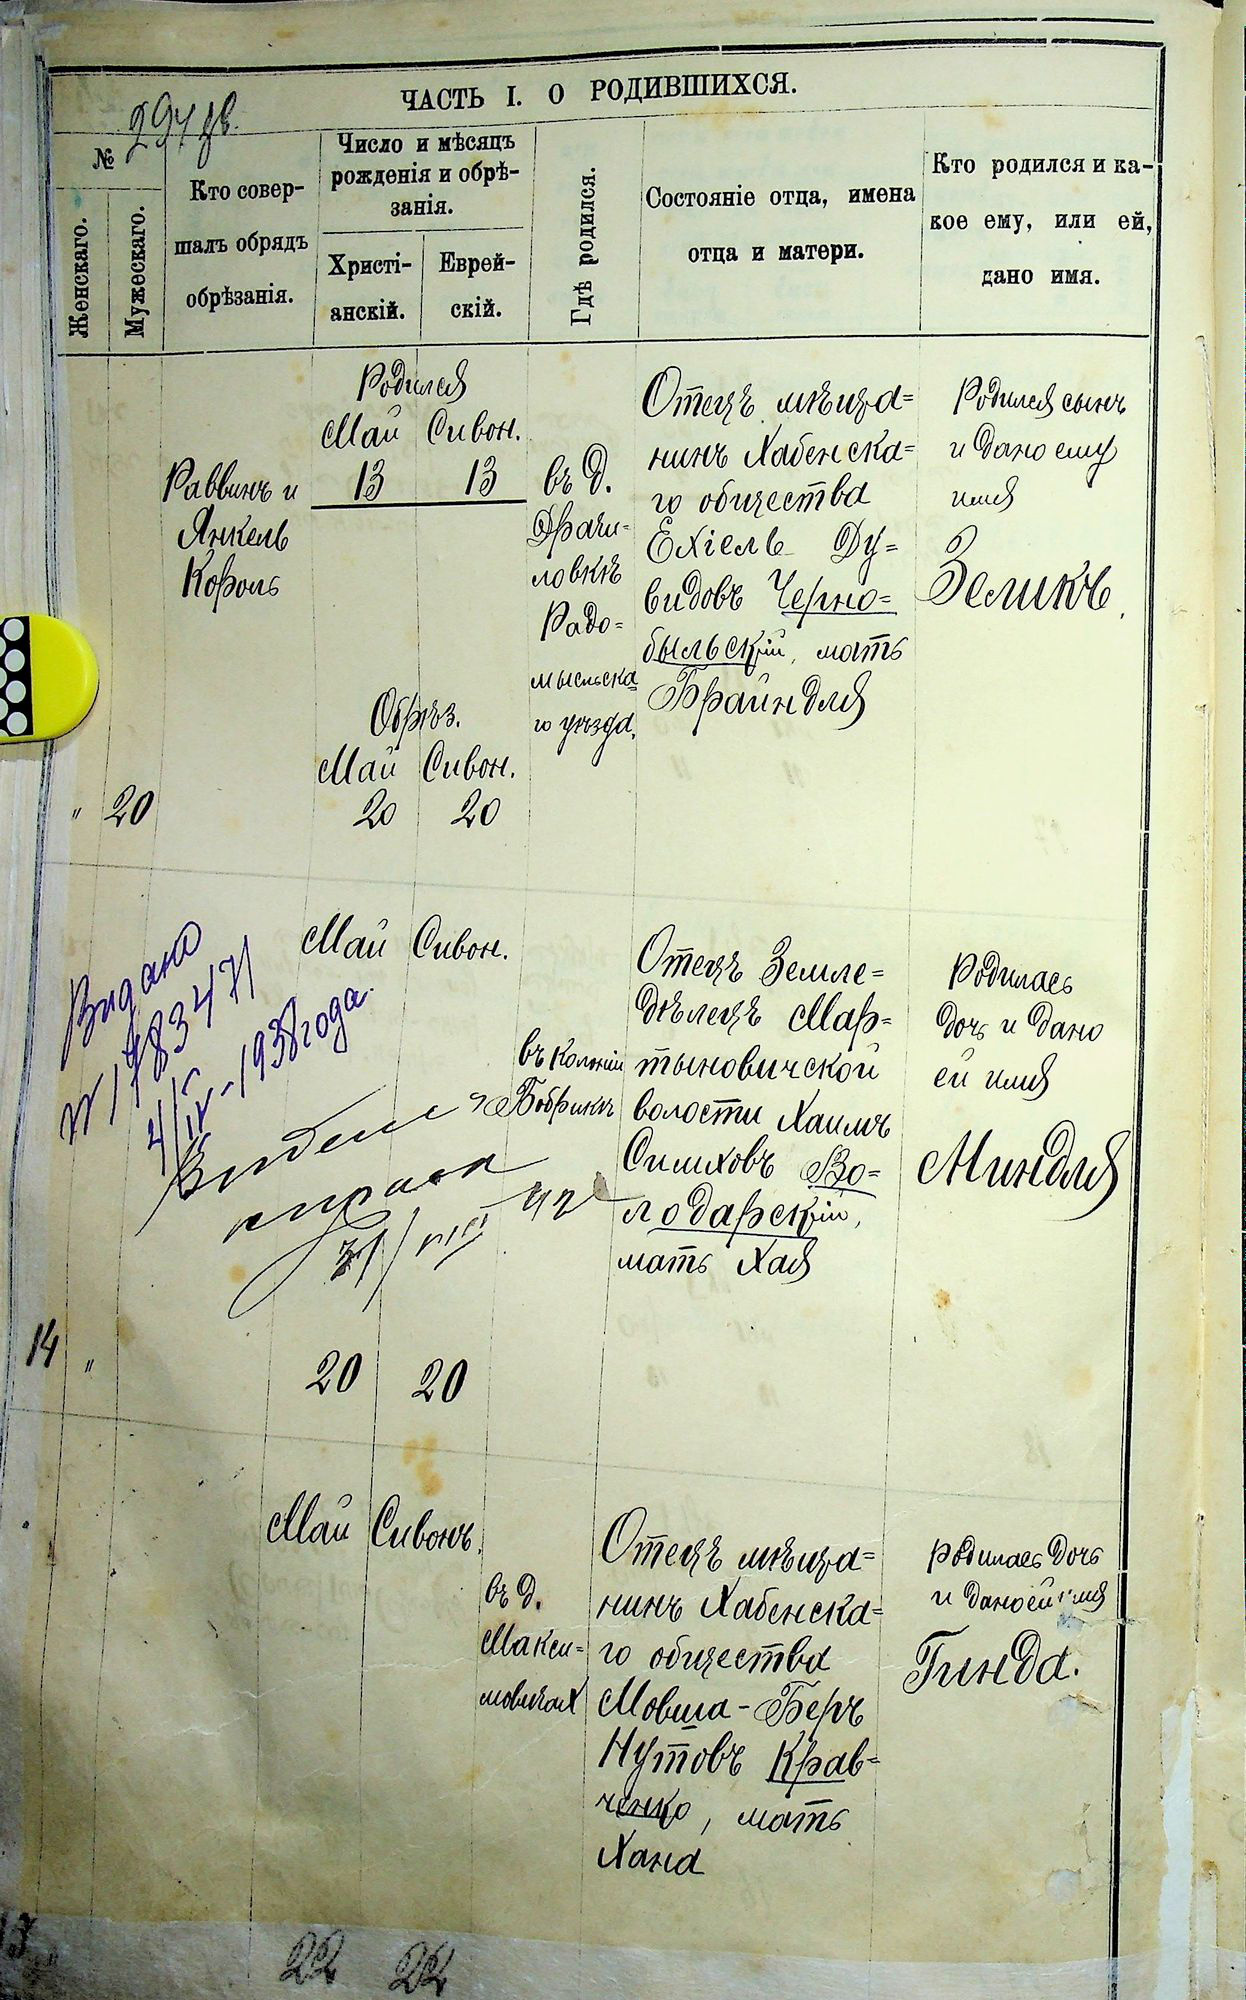 ЧАСТЬ I. О РОДИВШИХСЯ.
№
Женскаго.
Мужескаго.
Кто совер-
шалъ обрядъ
обрѣзанія.
Число и мѣсяцъ
рожденія и обрѣ-
занія.
Христі-
анскій.
Еврей-
скій.
Гдѣ родился.
Состояніе отца, имена
отца и матери.
Кто родился и ка-
кое ему, или ей,
дано имя.
" 20
Раввинъ и
Янкель
Король
Родился
Май Сивон.
13 13
Обрѣз.
Май Сивон.
20 20
въ д.
ловкѣ
Радо=
мысльска
го уѣзда.
Отецъ мѣща=
нинъ Хабенска=
го общества
Ехіель Ду=
видовъ Черно=
быльскій, мать
Брайндля
Родился сынъ
и дано ему
имя
Зеликъ.
14 "
Видано
№ 1783471
4/IV-1938 года.
31/VIII 42
Май Сивон.
20 20
въ Колоніи
Бобрикѣ
Отецъ Земле=
дѣлецъ Мар=
тыновичской
волости Хаимъ
Симховъ Во=
лодарскій,
мать Хая
Родилась
дочь и дано
ей имя
Миндля
Май Сивонъ.
22 22
въ д.
Макси=
мовичах
Отецъ мѣща=
нинъ Хабенска=
го общества
Мовша-Беръ
Нутовъ Крав=
ченко, мать
Хана
родилась дочь
и дано ей имя
Гинда.